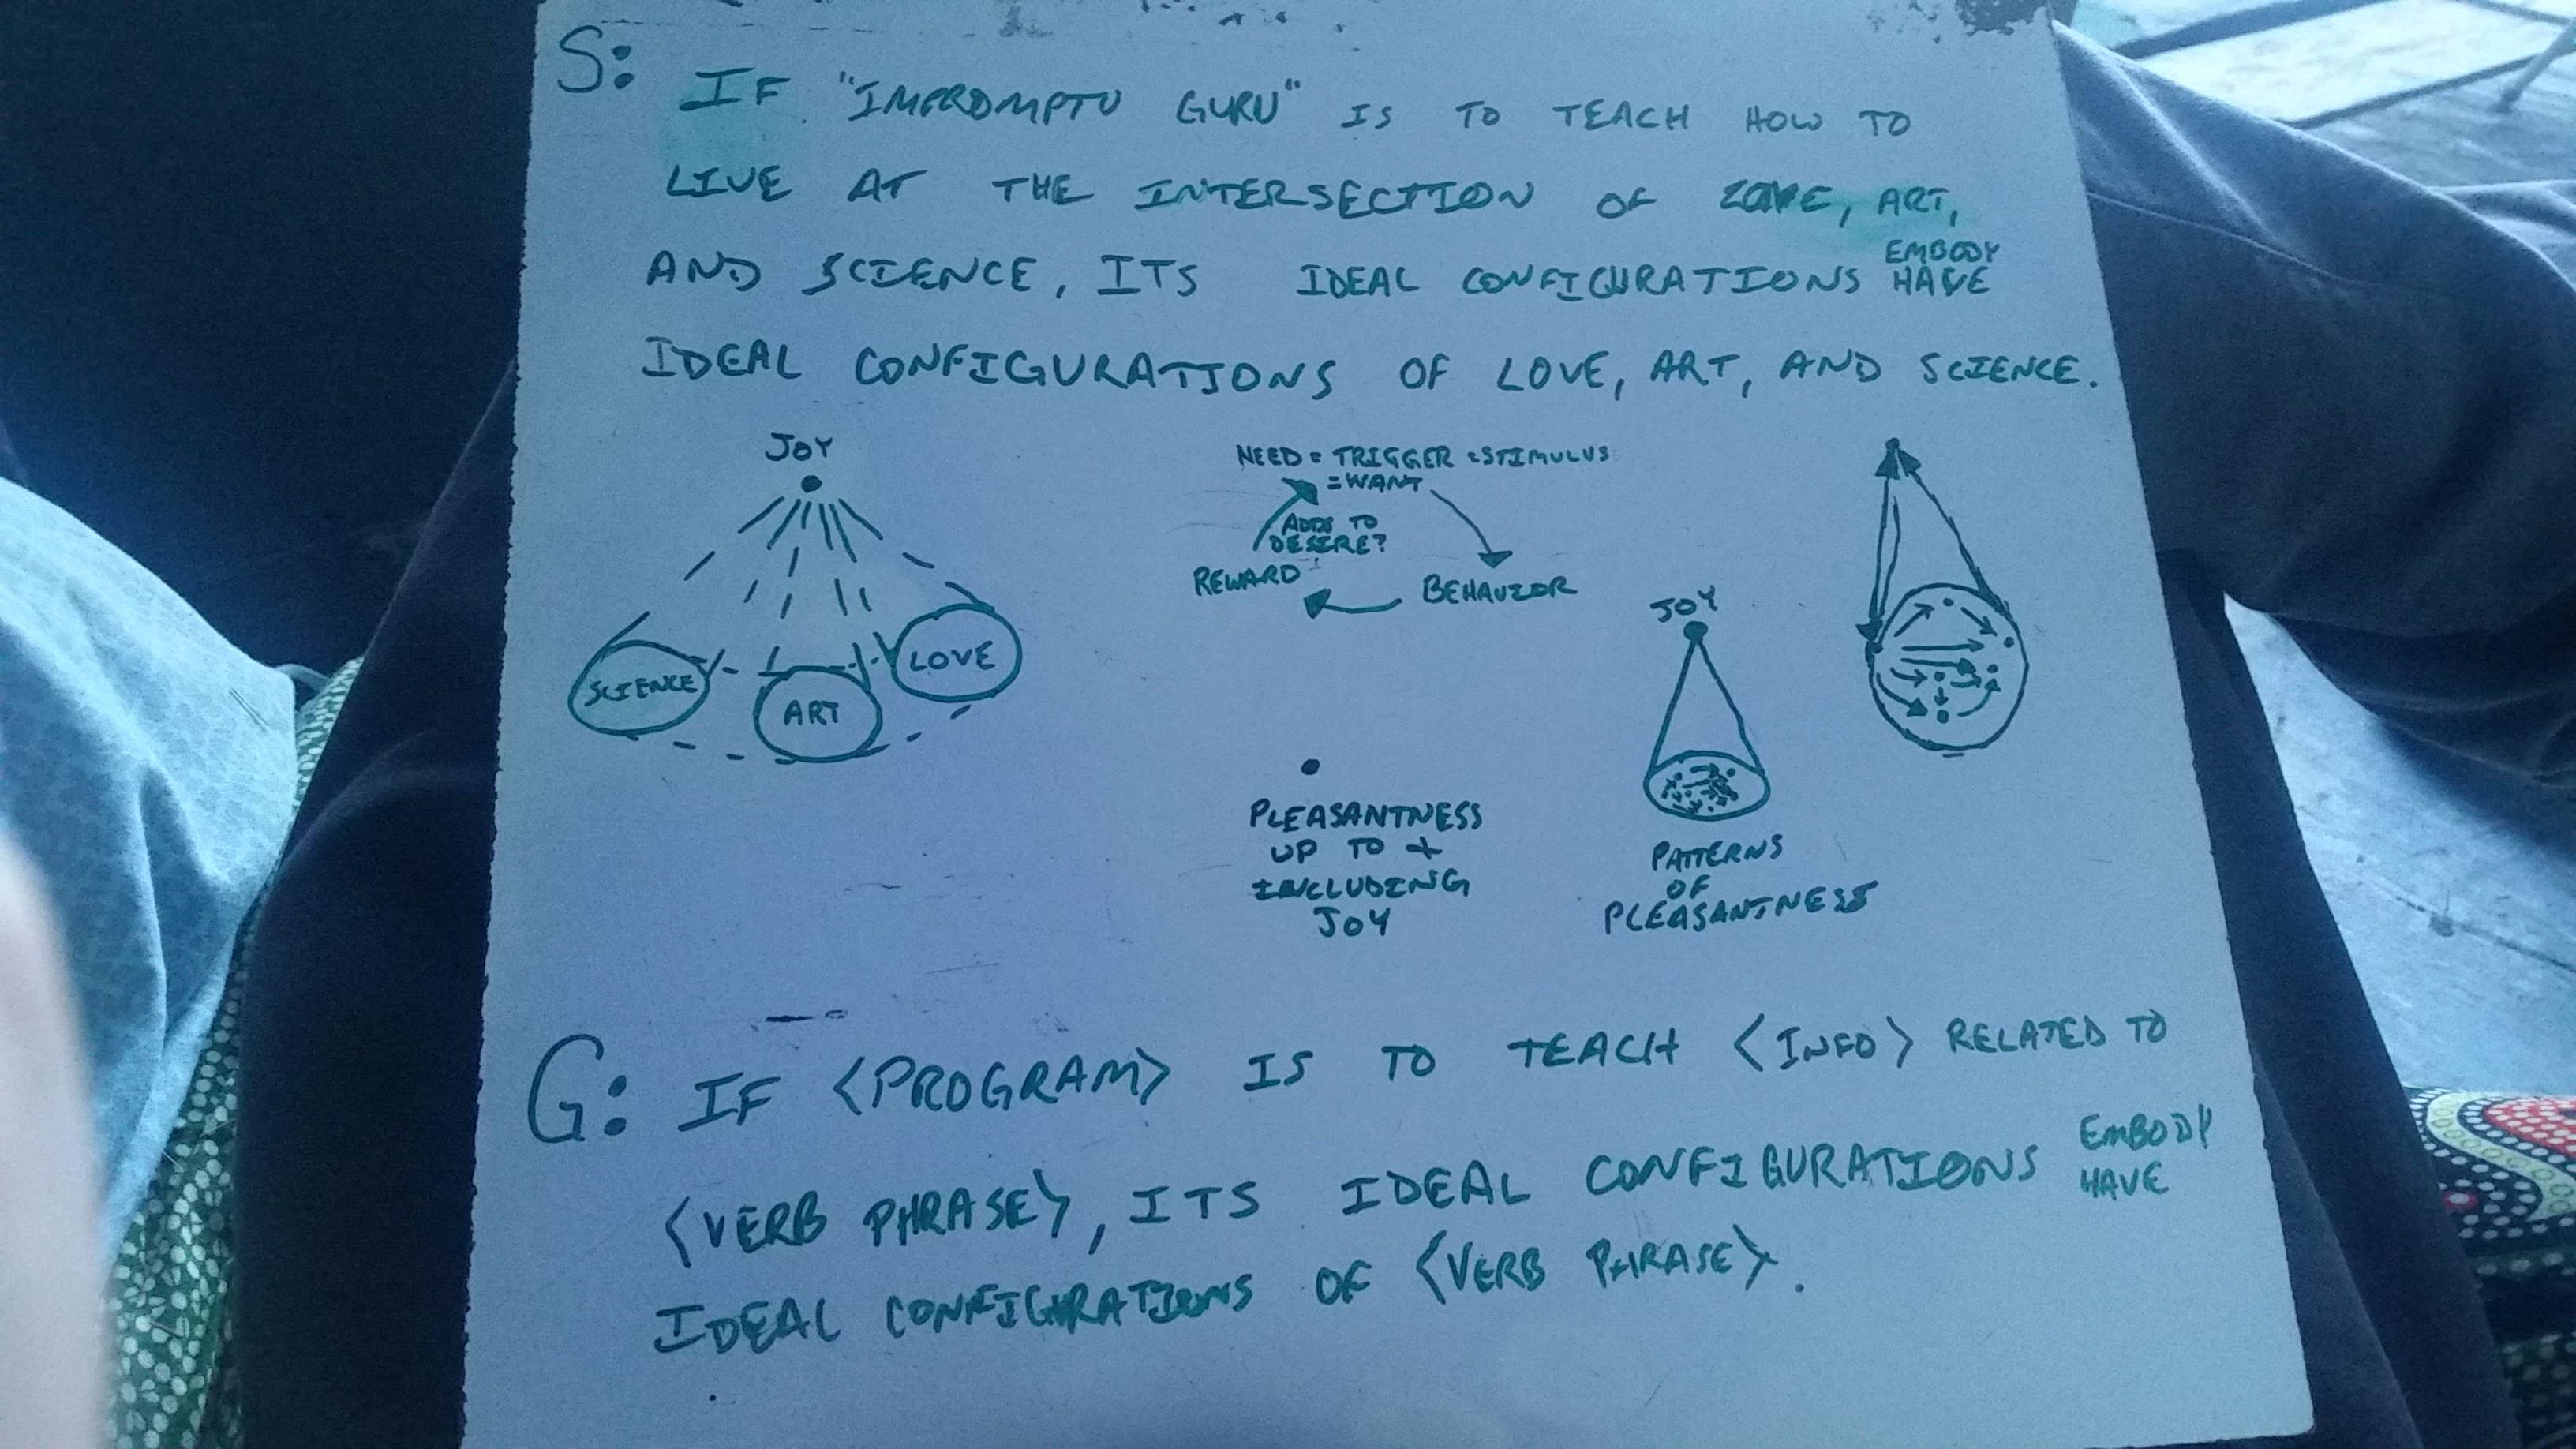 S: IF "IMPROMPTU GURU" IS TO TEACH HOW TO
LIVE AT THE INTERSECTION OF LOVE, ART,
EMBODY
AND SCIENCE, ITS IDEAL CONFIGURATIONS HAVE
IDEAL CONFIGURATIONS OF LOVE, ART, AND SCIENCE.
JOY
SCIENCE
ART
LOVE
NEED = TRIGGER = STIMULUS
= WANT
ADDS TO
DESIRE?
REWARD
BEHAVIOR
PLEASANTNESS
UP TO +
INCLUDING
JOY
JOY
PATTERNS
OF
PLEASANTNESS
G: IF <PROGRAM> IS TO TEACH <INFO> RELATED TO
EMBODY
<VERB PHRASE>, ITS IDEAL CONFIGURATIONS HAVE
IDEAL CONFIGURATIONS OF <VERB PHRASE>.